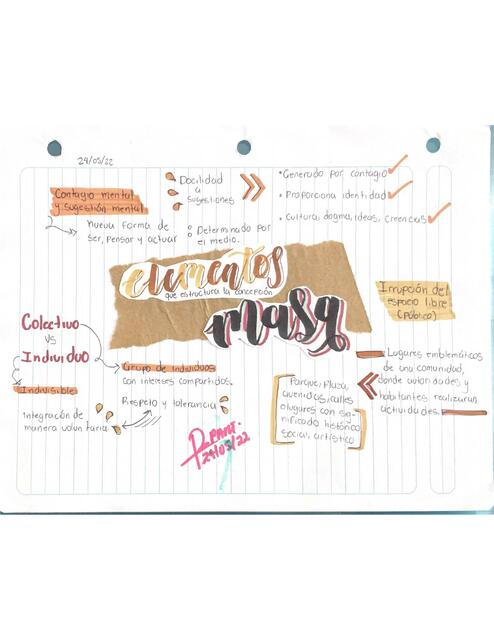 24/05/22
Contagio mental
y sugestión mental
Nueva forma de
ser, pensar y actuar
Docilidad
a
sugestiones
Determinado por
el medio.
• Generado por contagio
• Proporciona identidad
• Cultura, dogma, ideas, creencias
elementos
que estructura la concepción
masa
Irrupción del
espacio libre
(público)
Colectivo
vs
Individuo
Indivisible
Integración de
manera voluntaria.
Grupo de individuos
con intereses compartidos.
Respeto y tolerancia
Parque, Plaza,
avenidas, calles
o lugares con sig-
nificado histórico
social, artístico
Lugares emblemáticos
de una comunidad,
donde autoridades y
habitantes realizaran
actividades.
24/05/22